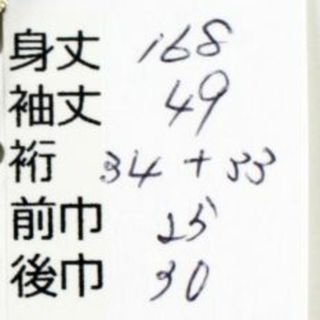 身丈 168
袖丈 49
裄 34 + 33
前巾 25
後巾 30